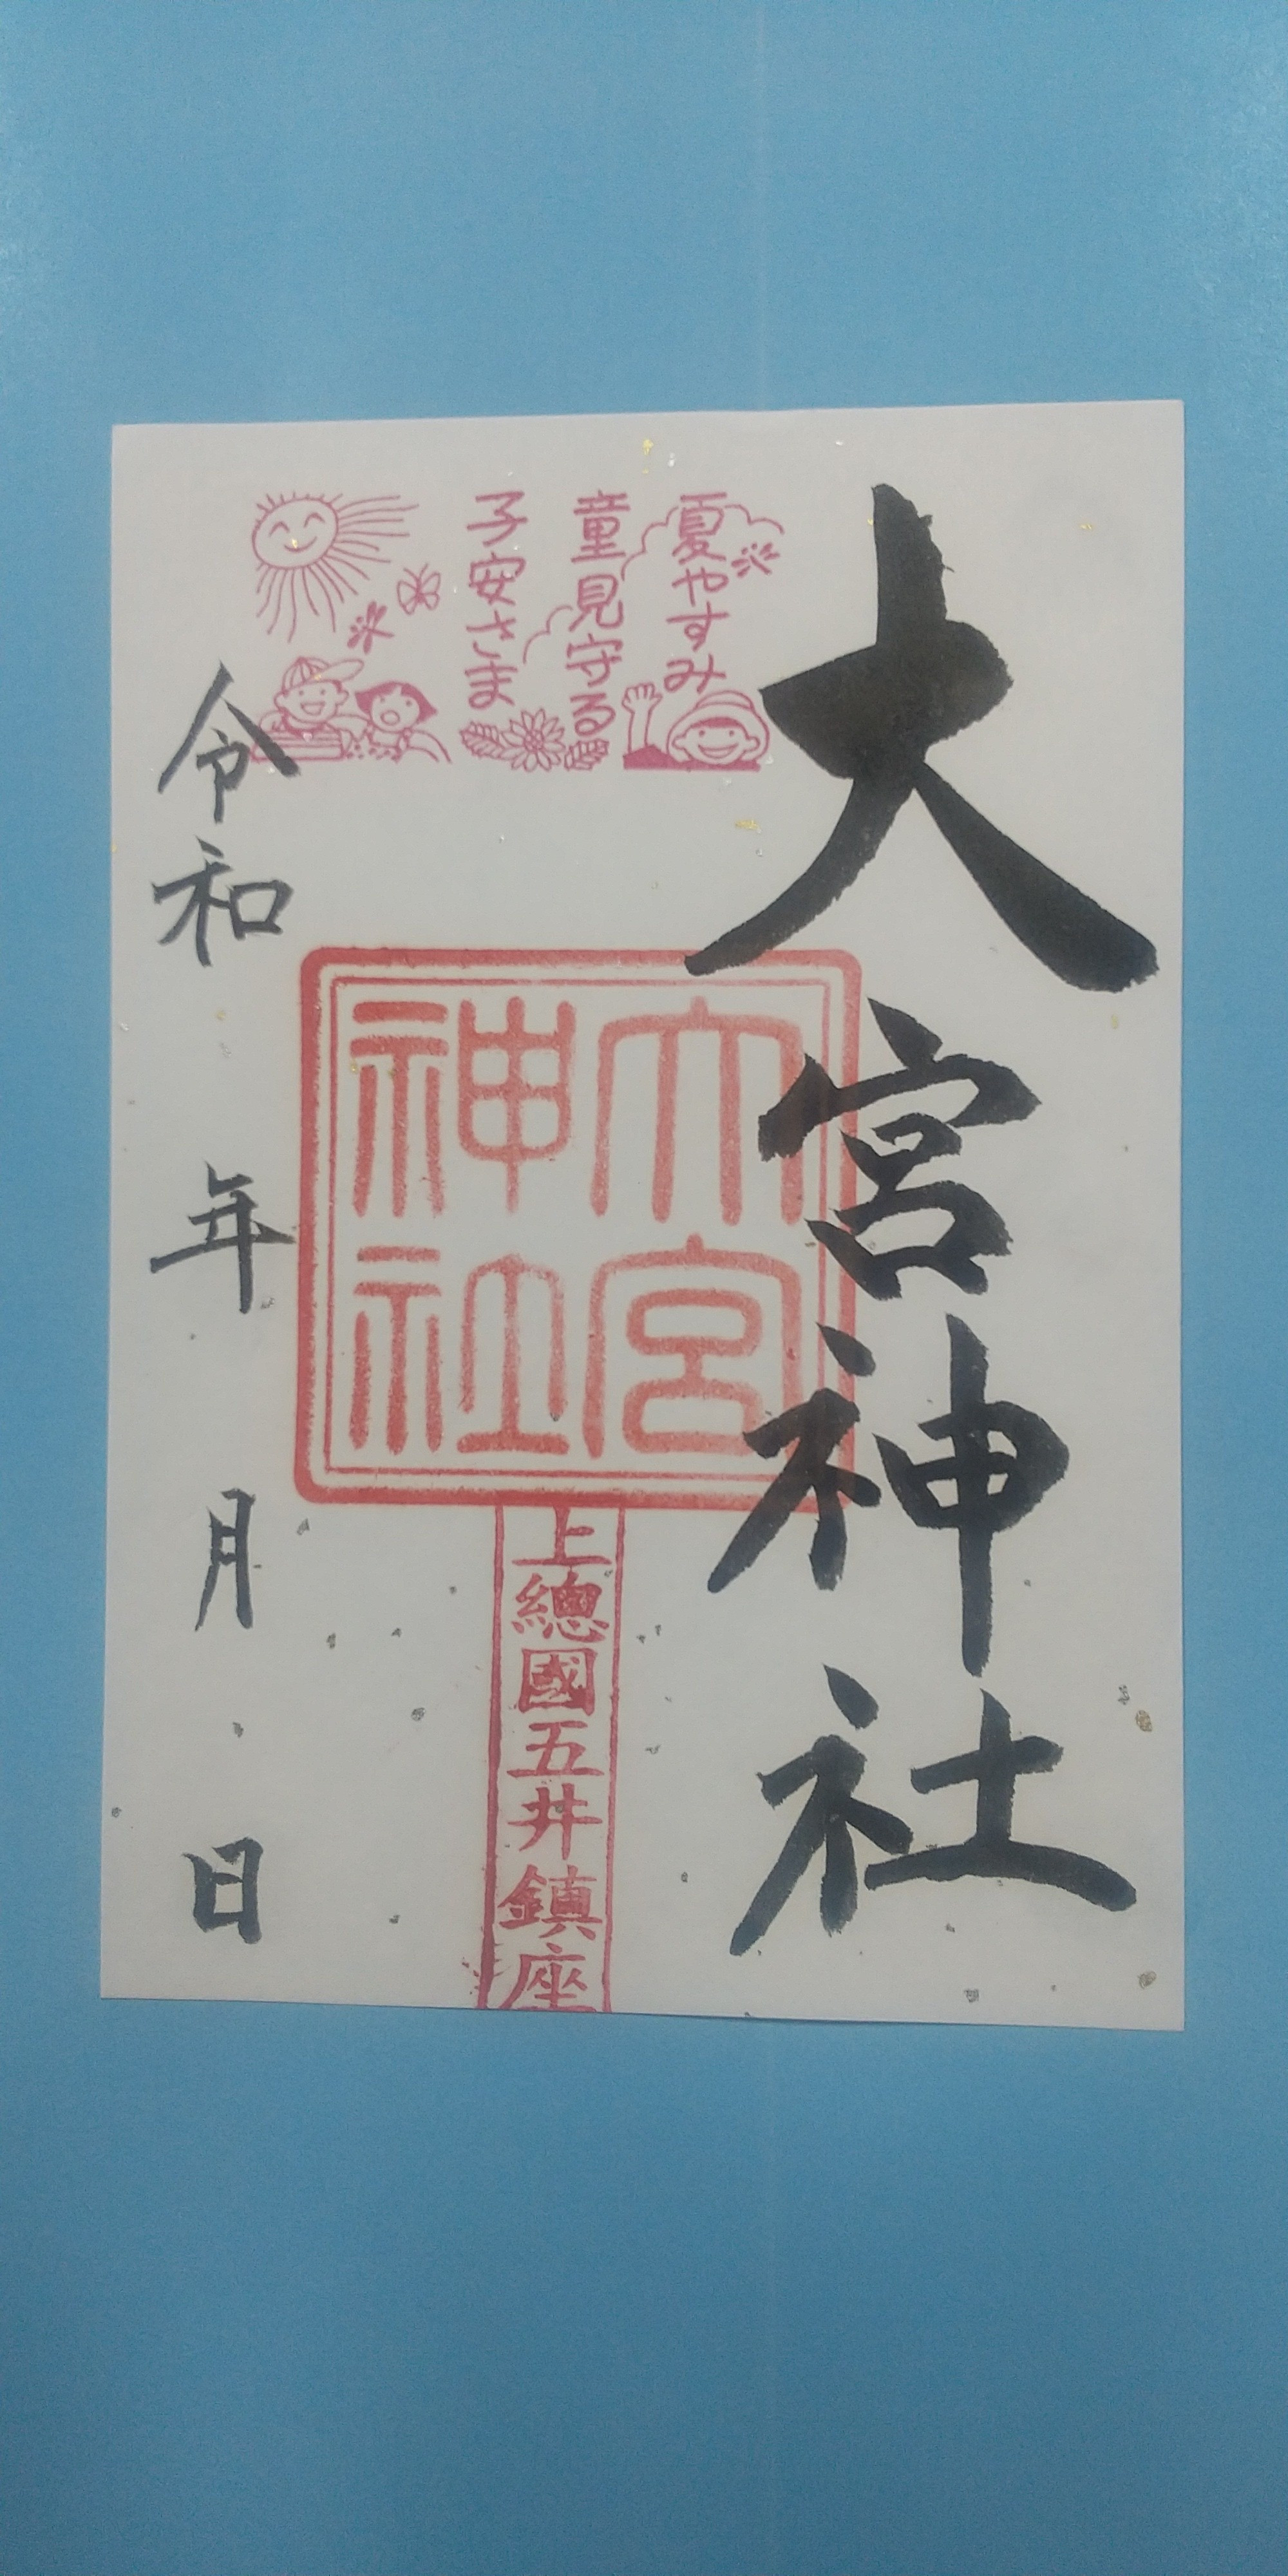 大宮神社
夏やすみ
童見守る
子安さま
大宮
神社
上總國五井鎮座
令和 年 月 日